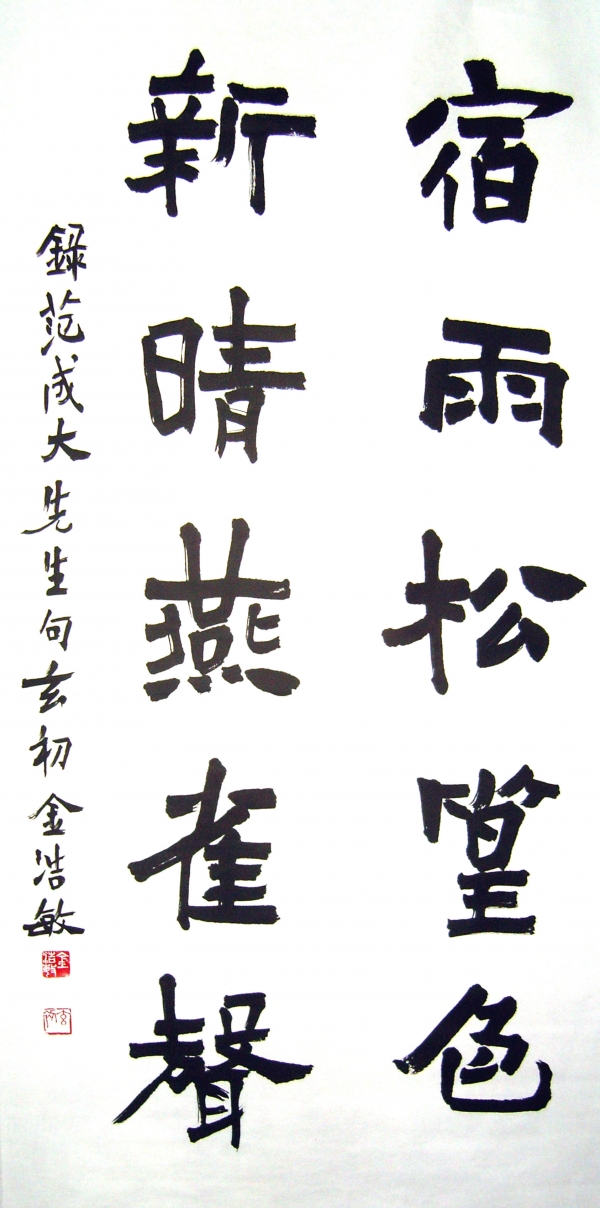 宿雨松篁色
新晴燕雀聲
録范成大先生句玄初金浩敏
金浩敏